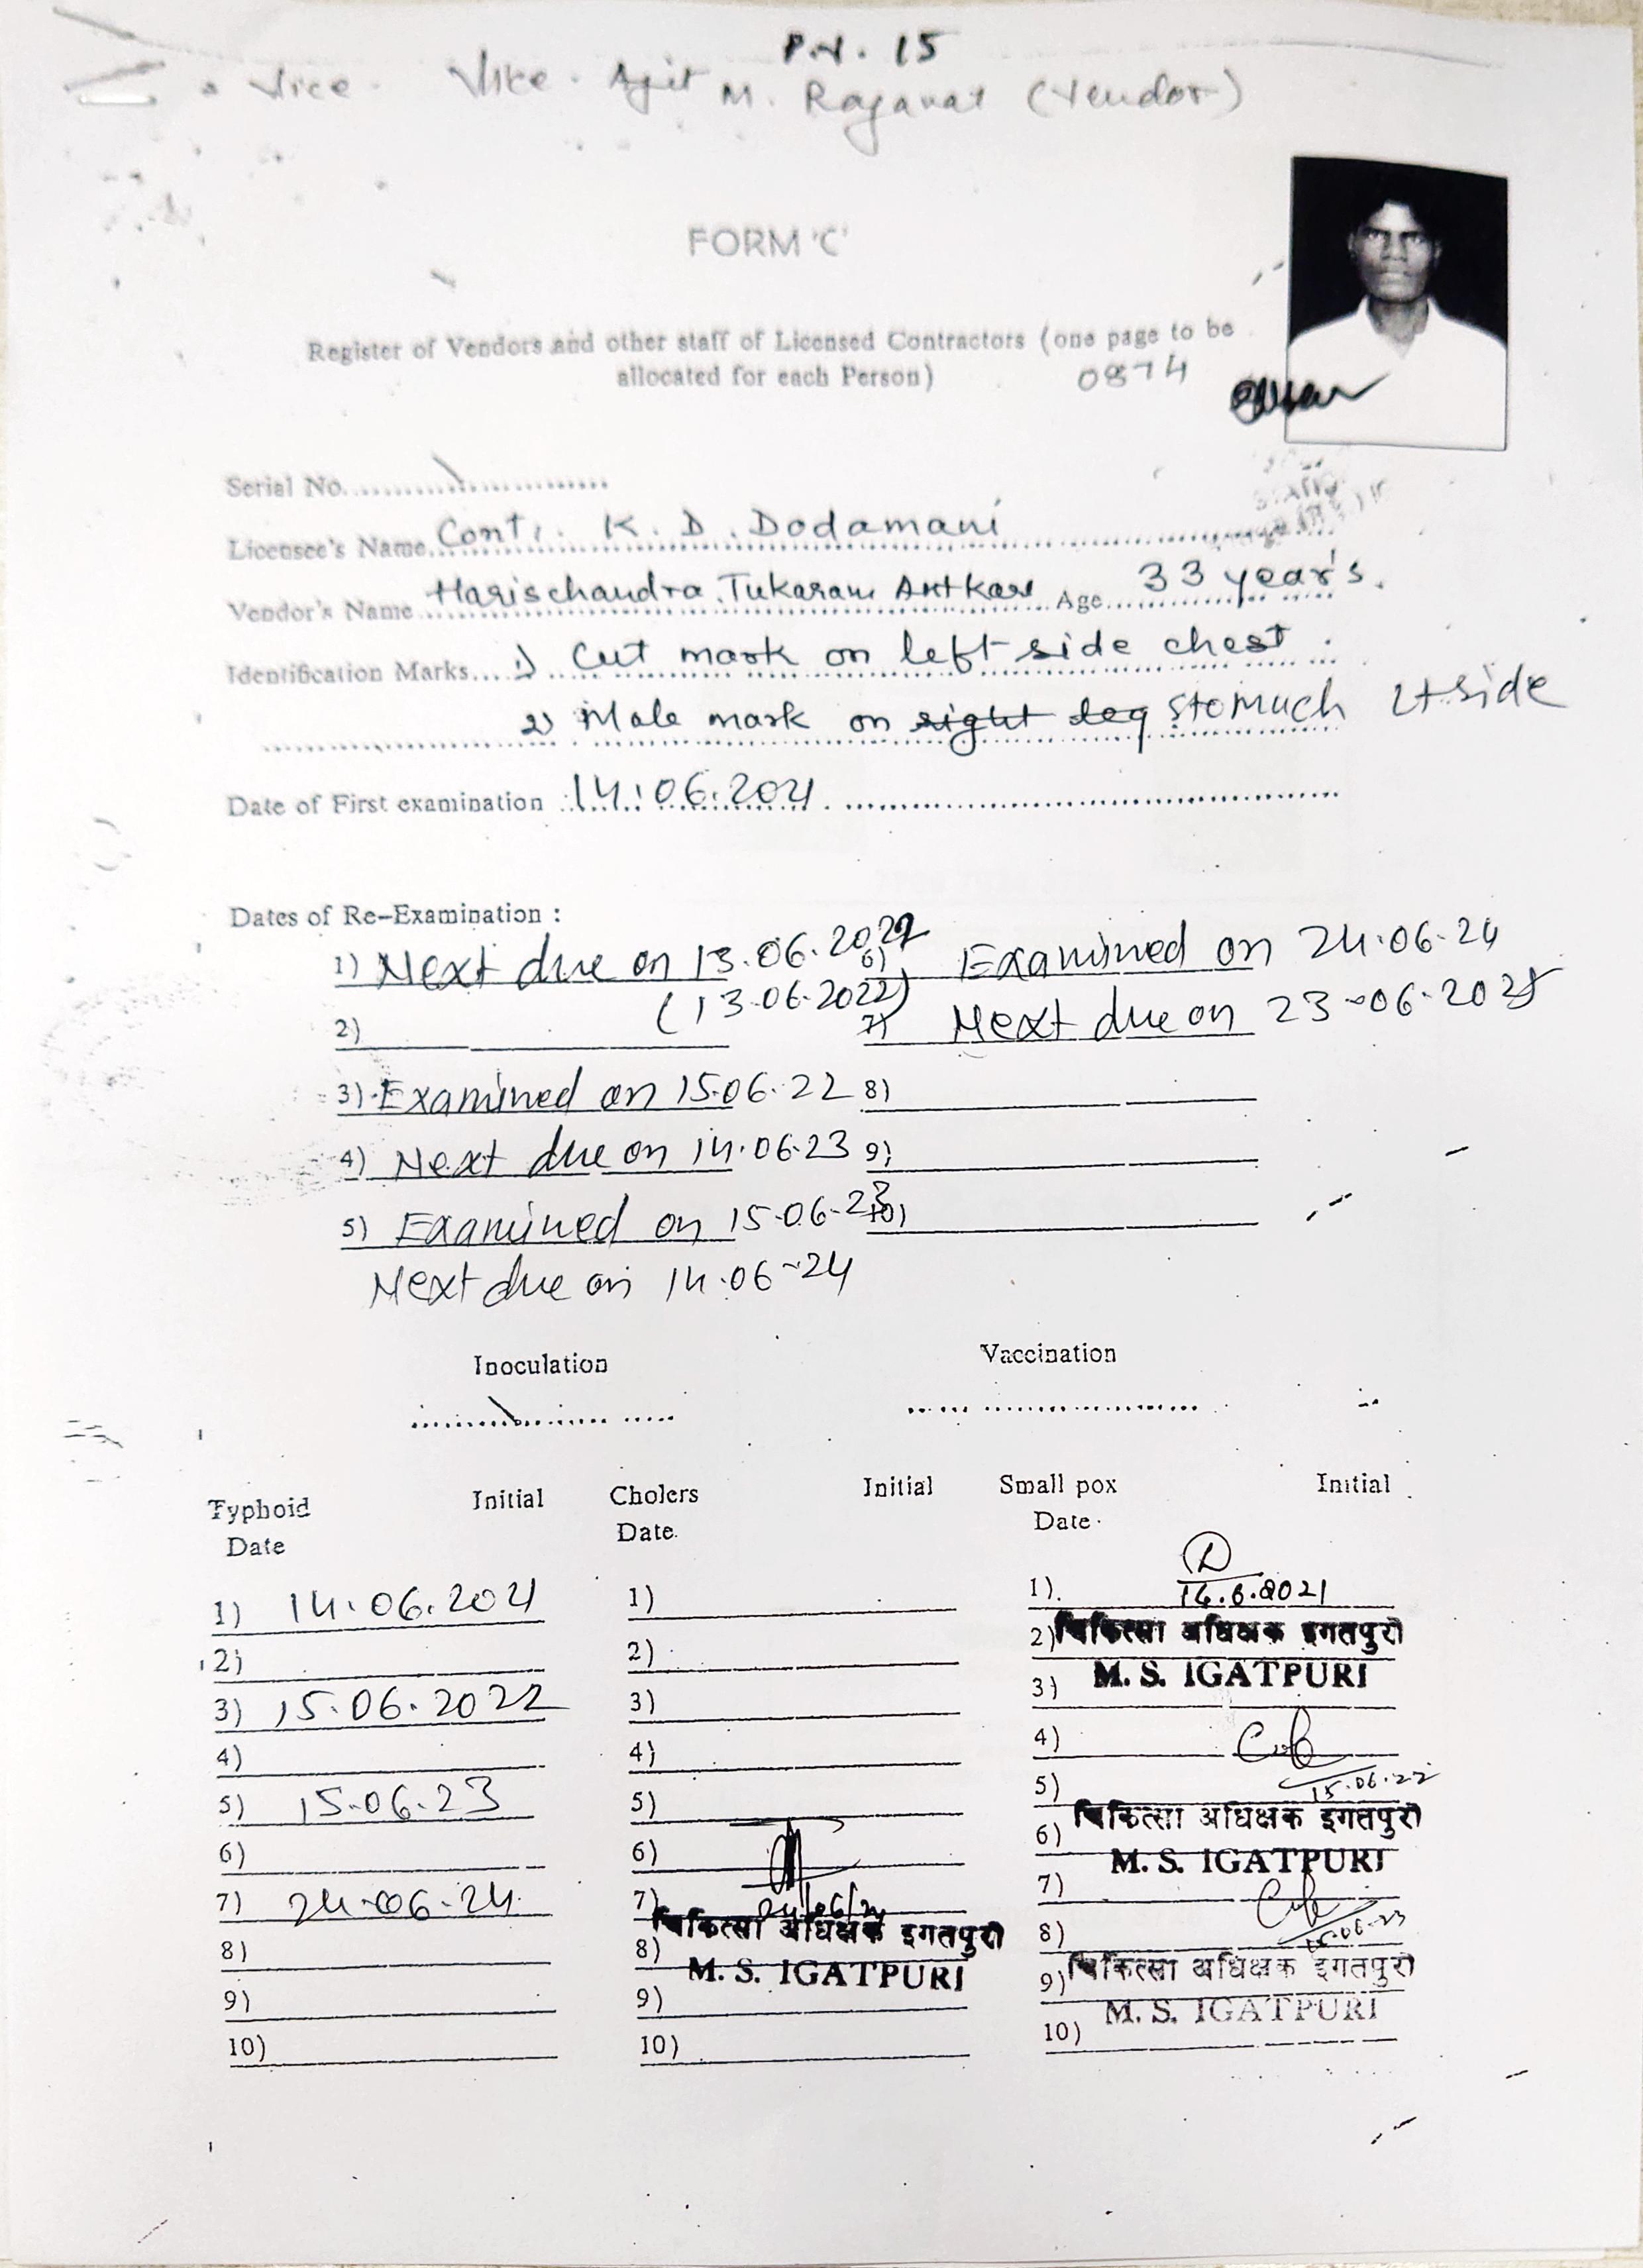 P.N. 15
Vice. Vice. Ajit M. Rajawat (Vendor)
FORM 'C'
Register of Vendors and other staff of Licensed Contractors (one page to be
allocated for each Person)
0874
Serial No.
Licensee's Name Cont. K. D. Dodamani
Vendor's Name Harischandra Tukaram Age 33 year's.
Identification Marks 1) Cut mark on left side chest.
2) Mole mark on right leg stomuch Lt side
Date of First examination 14.06.2021
Dates of Re-Examination :
1) Next due on 13.06.2022 6) Examined on 24.06.24
2) (13.06.2022) 7) Next due on 23-06-2025
3) Examined on 15.06.22 8)
4) Next due on 14.06.23 9)
5) Examined on 15.06-23 10)
Next due on 14.06-24
Inoculation Vaccination
Typhoid Initial Cholers Initial Small pox Initial
Date Date. Date
1) 14.06.2021 1) 1). 14.6.2021
2) 2) 2) चिकित्सा अधिक्षक इगतपुरी
3) 15.06.2022 3) 3) M. S. IGATPURI
4) 4) 4)
5) 15.06.23 5) 5) 15.06.22
6) 6) 6) चिकित्सा अधिक्षक इगतपुरी
M. S. IGATPURI
7) 24.06.24 7) 24/06/24 7)
चिकित्सा अधिक्षक इगतपुरी
8) 8) M. S. IGATPURI 8) 15.06.23
9) 9) 9) चिकित्सा अधिक्षक इगतपुरी
M. S. IGATPURI
10) 10) 10)